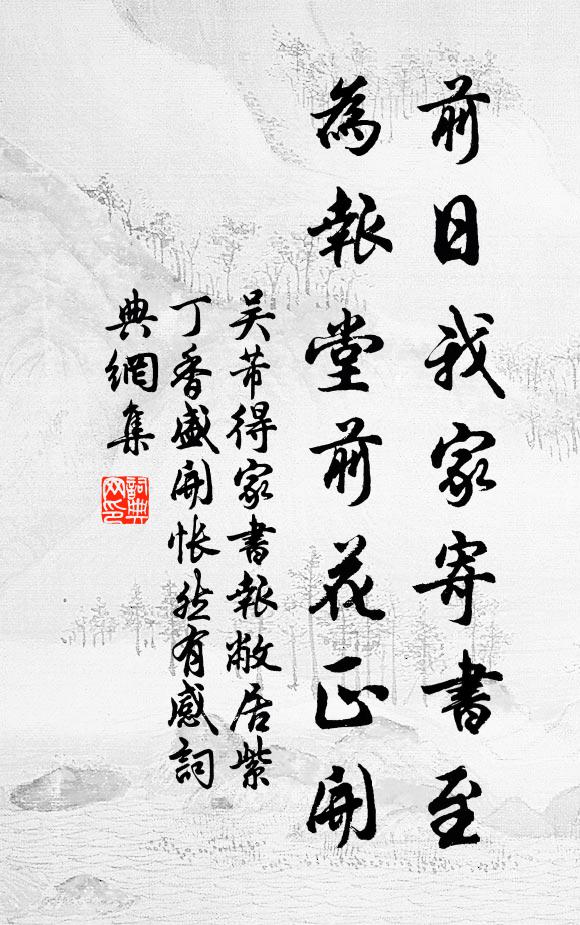 前日我家寄書至
為報堂前花正開
吴芾得家書報敝居紫
丁香盛開悵然有感詞
典網集
詞典
网印